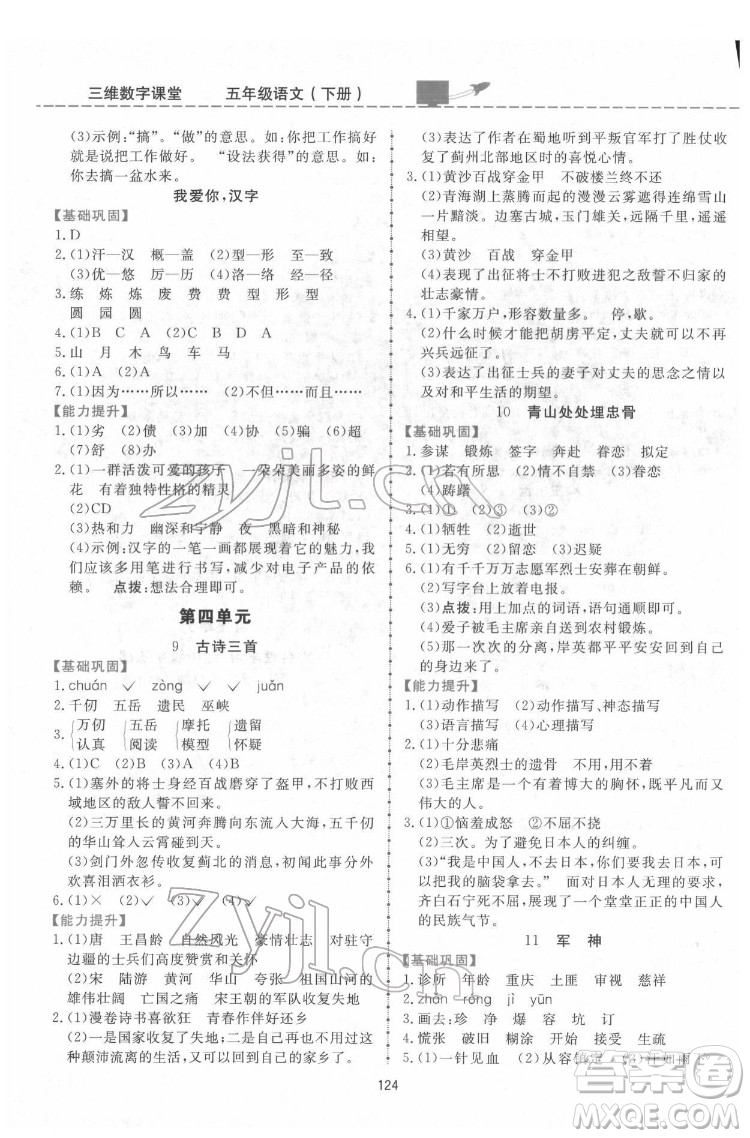 三维数字课堂　五年级语文（下册）
(3)示例:“搞”。“做”的意思。如:你把工作搞好
就是说把工作做好。　“设法获得”的意思。如:
你去搞一盆水来。
我爱你,汉字
【基础巩固】
1. D
2. (1)汗—汉　概　(2)型—形　致—致
(3)优—悠　厉—历　(4)洛—络　至—致
3. 练　炼　炼　废　费　费　形　型　形
圆　园　圆
4. (1)B　C　A　(2)B　C　A
5. 山　月　木　鸟　车　马
6. (1)A　(2)A
7. (1)因为……所以……　(2)不但……而且……
【能力提升】
1. (1)劣　(2)债　(3)加　(4)伪　(5)骗　(6)超
(7)舒　(8)办
2. (1)一群活泼可爱的孩子　一朵朵美丽多姿的鲜
花　有着独特性格的精灵
(2)CD
(3)热和力　幽深和宁静　夜　黑暗和神秘
(4)示例:汉字的一笔一画都展现了它的魅力,我
们应该多用笔进行书写,减少对电子产品的依
赖。　点拨:想法合理即可。
第四单元
9　古诗三首
【基础巩固】
1. chuán　✓　zòng　✓　✓　juǎn
2. 千仞　五岳　遗民　巫峡
3. 万仞　五岳　摩托　遗留
认真　阅读　模型　怀疑
4. (1)C　(2)D　(3)A　(4)B
5. (1)塞外的将士身经百战磨穿了盔甲,不打败西
域地区的敌人誓不回还。
(2)三万里长的黄河奔腾向东流入大海,五千仞
的华山耸入云霄碰到青天。
(3)剑门外忽然传收复蓟北的消息,初听到时分外
欢喜泪洒衣衫。
6. (1)×　(2)✓　(3)✓　(4)✓
【能力提升】
1. (1)唐　王昌龄　自然风光　豪情壮志　对驻守
边疆的士兵们关切和关怀
(2)宋　陆游　黄河　华山　夸张　祖国山河的
雄伟壮丽　亡国之痛　宋王朝的军队收复失地
2. (1)漫卷诗书喜欲狂　青春作伴好还乡
(2)一是国家收复了失地;二是自己再也不过这
种颠沛流离的生活,又可以回到家乡了。
(3)表达了作者在蜀地听到平叛官兵打了胜仗收
复了蓟州北部地区时的喜悦心情。
3. (1)黄沙百战穿金甲　不破楼兰终不还
(2)青海湖上蒸腾的漫漫云雾遮得连绵雪山
一片黯淡。边塞古城,玉门雄关,远隔千里,遥遥
相望。
(3)黄沙　百战　穿金甲
(4)表现了出征将士不打败进犯之敌誓不归家的
壮志豪情。
4. (1)千家万户,形容数量多。　停,歇。
(2)什么时候才能把胡虏平定,丈夫就可以不再
兴兵远征。
(3)表达了出征士兵的妻子对丈夫归来的期盼以
及对和平生活的期望。
10　青山处处埋忠骨
【基础巩固】
1. 参谋　锻炼　签字　奔赴　眷恋　拟定
2. (1)若有所思　(2)情不自禁　(3)眷恋
(4)踌躇
3. (1)①　(2)③　(3)②
4. (1)牺牲　(2)逝世
5. (1)无穷　(2)留恋　(3)迟疑
6. (1)有千千万万志愿军烈士安葬在朝鲜。
(2)写字台上放着电报。
(3)点拨:先用上加点的词语,语句通顺即可。
(4)爱子被毛主席送到农村锻炼。
(5)那一次次的分离,岸英都平平安安回来了。
【能力提升】
1. (1)动作描写　(2)动作描写、神态描写
(3)语言描写　(4)心理描写
2. (1)十分悲痛
(2)毛岸英烈士的遗骨　不用,用不着
(3)毛主席是一个有着博大的胸怀,既平凡而又
伟大的人。
3. (1)①恼羞成怒　②不屈不挠
(2)三次。为了避免日本人的纠缠。
(3)“我是中国人,不去日本。你们要我去日本,可
以把我的脑袋拿去。”　面对日本人无理的要求,
齐白石宁死不屈,表现了一个堂堂正正的中国人
的民族气节。
11　军　神
【基础巩固】
1. 诊所　年龄　重庆　土匪　审视　慈祥
2. zhěn　róng　jì　yūn
3. 画去:珍　净　爆　容　坑　订
4. 慌张　破旧　糊涂　开始　接受　生疏
5. (1)一针见血　(2)从容镇定
124
答案圈
MXQE.COM
zyjl.cn
zyjl.cn